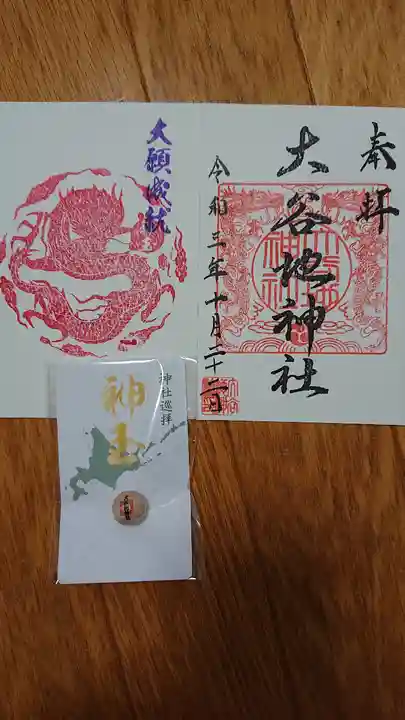 奉拝
大谷地神社
令和三年十月二十二日
大願成就
神社巡拝
神玉